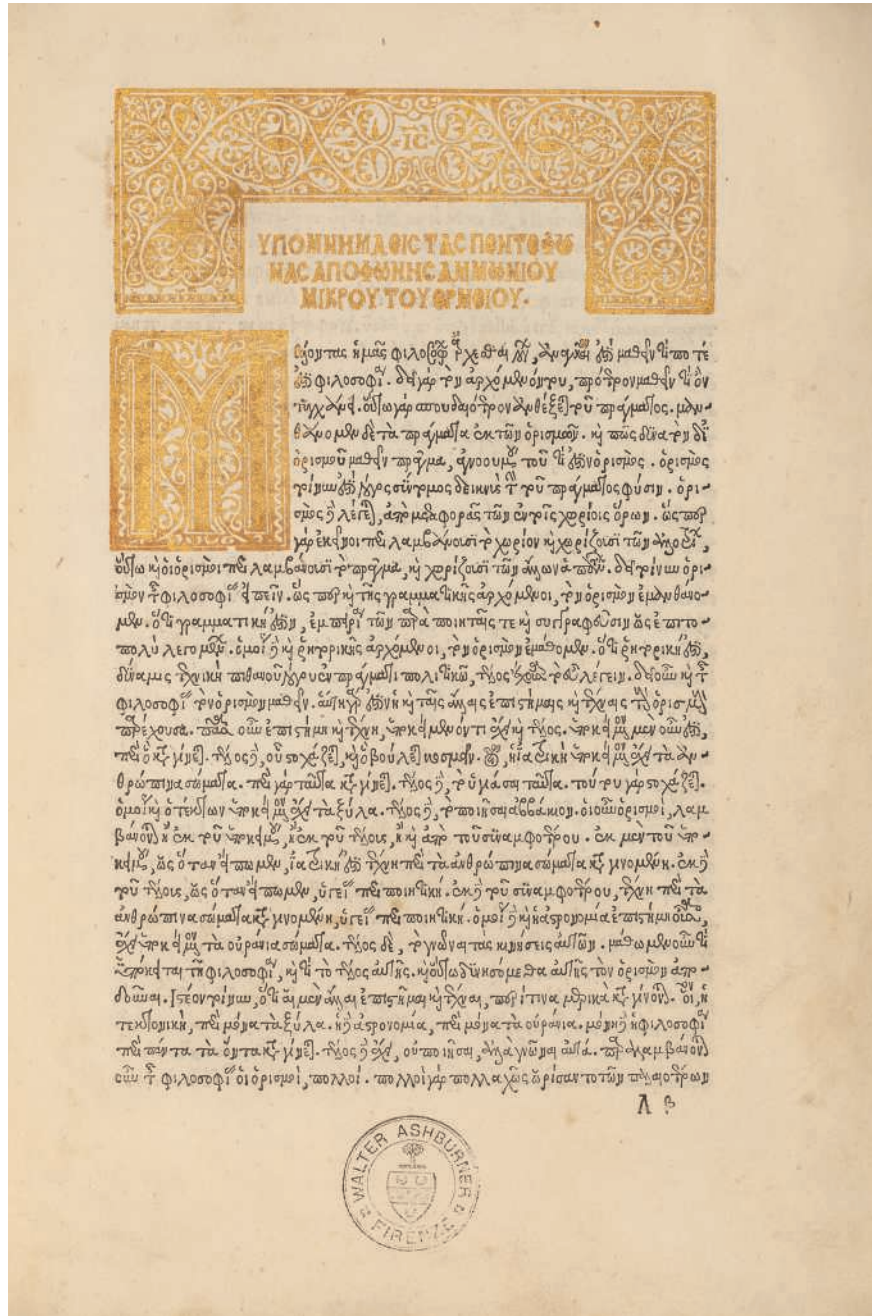 IC
ΥΠΟΜΝΗΜΑ ΕΙΣ ΤΑΣ ΠΕΝΤΕ ΦΩ
ΝΑΣ ΑΠΟ ΦΩΝΗΣ ΑΜΜΩΝΙΟΥ
ΜΙΚΡΟΥ ΤΟΥ ΕΡΜΕΙΟΥ.
Μέλλοντας ἡμᾶς φιλοσοφίας ἄρχεσθαι, ἀναγκαῖον ἐστὶ μαθεῖν τί ποτέ
ἐστι φιλοσοφία. δεῖ γὰρ τὸν ἀρχόμενόν του, πρότερον μαθεῖν τί ὂν
τυγχάνει. οὕτω γὰρ σπουδαιότερον ἀνθέξεται τοῦ πράγματος. μαν-
θάνομεν δὲ τὰ πράγματα ἐκ τῶν ὁρισμῶν. καὶ πῶς δυνατὸν δι'
ὁρισμοῦ μαθεῖν πρᾶγμα, ἀγνοοῦντας τοῦ τί ἐστιν ὁρισμός. ὁρισμὸς
τοίνυν ἐστὶ λόγος σύντομος δεικνὺς τὴν τοῦ πράγματος φύσιν. ὁρι-
σμὸς δὲ λέγεται, ἀπὸ μεταφορᾶς τῶν ἐν τοῖς χωρίοις ὅρων. ὥσπερ
γὰρ ἐκεῖνοι περιλαμβάνουσι τὸ χωρίον καὶ χωρίζουσι τῶν ἀλλοτρίων,
οὕτω καὶ οἱ ὁρισμοὶ περιλαμβάνουσι τὸ πρᾶγμα, καὶ χωρίζουσι τῶν ἄλλων ἁπάντων. δεῖ τοίνυν ὁρι-
σμὸν τῆς φιλοσοφίας εἰπεῖν. ὥσπερ καὶ τῆς γραμματικῆς ἀρχόμενοι, τὸν ὁρισμὸν ἐμανθάνο-
μεν. ὅτι γραμματική ἐστιν, ἐμπειρία τῶν παρὰ ποιηταῖς τε καὶ συγγραφεῦσιν ὡς ἐπιτο-
πολὺ λεγομένων. ὁμοίως δὲ καὶ ῥητορικῆς ἀρχόμενοι, τὸν ὁρισμὸν ἐμάθομεν. ὅτι ῥητορική ἐστι,
δύναμις τεχνικὴ πιθανοῦ λόγου ἐν πράγματι πολιτικῷ, τέλος ἔχουσα τὸ εὖ λέγειν. δεῖ οὖν καὶ τῆς
φιλοσοφίας τὸν ὁρισμὸν μαθεῖν. αὕτη γάρ ἐστιν ἡ καὶ ταῖς ἄλλαις ἐπιστήμαις καὶ τέχναις τὸν ὁρισμὸν
παρέχουσα. πᾶσα οὖν ἐπιστήμη καὶ τέχνη, ὑποκείμενόν τι ἔχει καὶ τέλος. ὑποκείμενον μὲν οὖν ἐστι,
περὶ ὃ καταγίνεται. τέλος δὲ, οὗ στοχάζεται, καὶ ὃ βούλεται ποιῆσαι. οἷον, ἡ ἰατρικὴ ὑποκείμενον ἔχει τὰ ἀν-
θρώπινα σώματα. περὶ γὰρ ταῦτα καταγίνεται. τέλος δὲ, τὸ ὑγιάσαι ταῦτα. τούτου γὰρ στοχάζεται.
ὁμοίως καὶ ὁ τέκτων ὑποκείμενον ἔχει τὰ ξύλα. τέλος δὲ, τὸ ποιῆσαι ἀββάκιον. οἱ οὖν ὁρισμοὶ, λαμ
βάνονται ἢ ἐκ τοῦ ὑποκειμένου, ἢ ἐκ τοῦ τέλους, ἢ καὶ ἀπὸ τοῦ συναμφοτέρου. ἐκ μὲν τοῦ ὑπο-
κειμένου, ὡς ὅταν εἴπωμεν, ἰατρική ἐστι τέχνη περὶ τὰ ἀνθρώπινα σώματα καταγινομένη. ἐκ δὲ
τοῦ τέλους, ὡς ὅταν εἴπωμεν, ὑγείας περιποιητική. ἐκ δὲ τοῦ συναμφοτέρου, τέχνη περὶ τὰ
ἀνθρώπινα σώματα καταγινομένη, ὑγείας περιποιητική. ὁμοίως δὲ καὶ ἡ ἀστρονομία ἐπιστήμη οὖσα,
ἔχει ὑποκείμενον τὰ οὐράνια σώματα. τέλος δὲ, τὸ γνῶναι τὰς κινήσεις αὐτῶν. μάθωμεν οὖν τί
ὑπόκειται τῇ φιλοσοφίᾳ, καὶ τί τὸ τέλος αὐτῆς. καὶ οὕτω δυνησόμεθα αὐτῆς τὸν ὁρισμὸν ἀπο-
δοῦναι. Ἰστέον τοίνυν, ὅτι αἱ μὲν ἄλλαι ἐπιστῆμαι καὶ τέχναι, περί τινα μερικὰ καταγίνονται. οἷον, ἡ
τεκτονικὴ, περὶ μόνα τὰ ξύλα. ἡ δὲ ἀστρονομία, περὶ μόνα τὰ οὐράνια. μόνη δὲ ἡ φιλοσοφία
περὶ πάντα τὰ ὄντα καταγίνεται. τέλος δὲ ἔχει, οὐ ποιῆσαι, ἀλλὰ γνῶναι αὐτά. παραλαμβάνονται
οὖν τῆς φιλοσοφίας οἱ ὁρισμοὶ, πολλοί. πολλοὶ γὰρ πολλαχῶς ὡρίσαντο τῶν παλαιοτέρων
Α β
WALTER ASHBURNER
FIRENZE